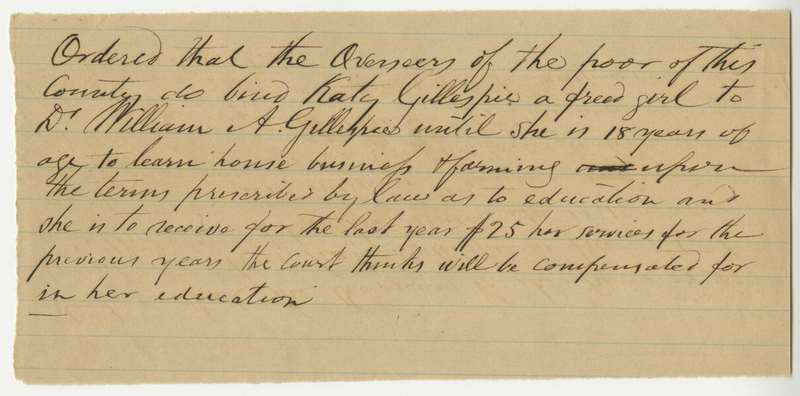 Ordered that the Overseers of the poor of this
County do bind Katy Gillespie a freed girl to
Dr William A. Gillespie until she is 18 years of
age to learn house business & farming and upon
the terms prescribed by law as to education and
she is to receive for the last year $25 her services for the
previous years the court thinks will be compensated for
in her education